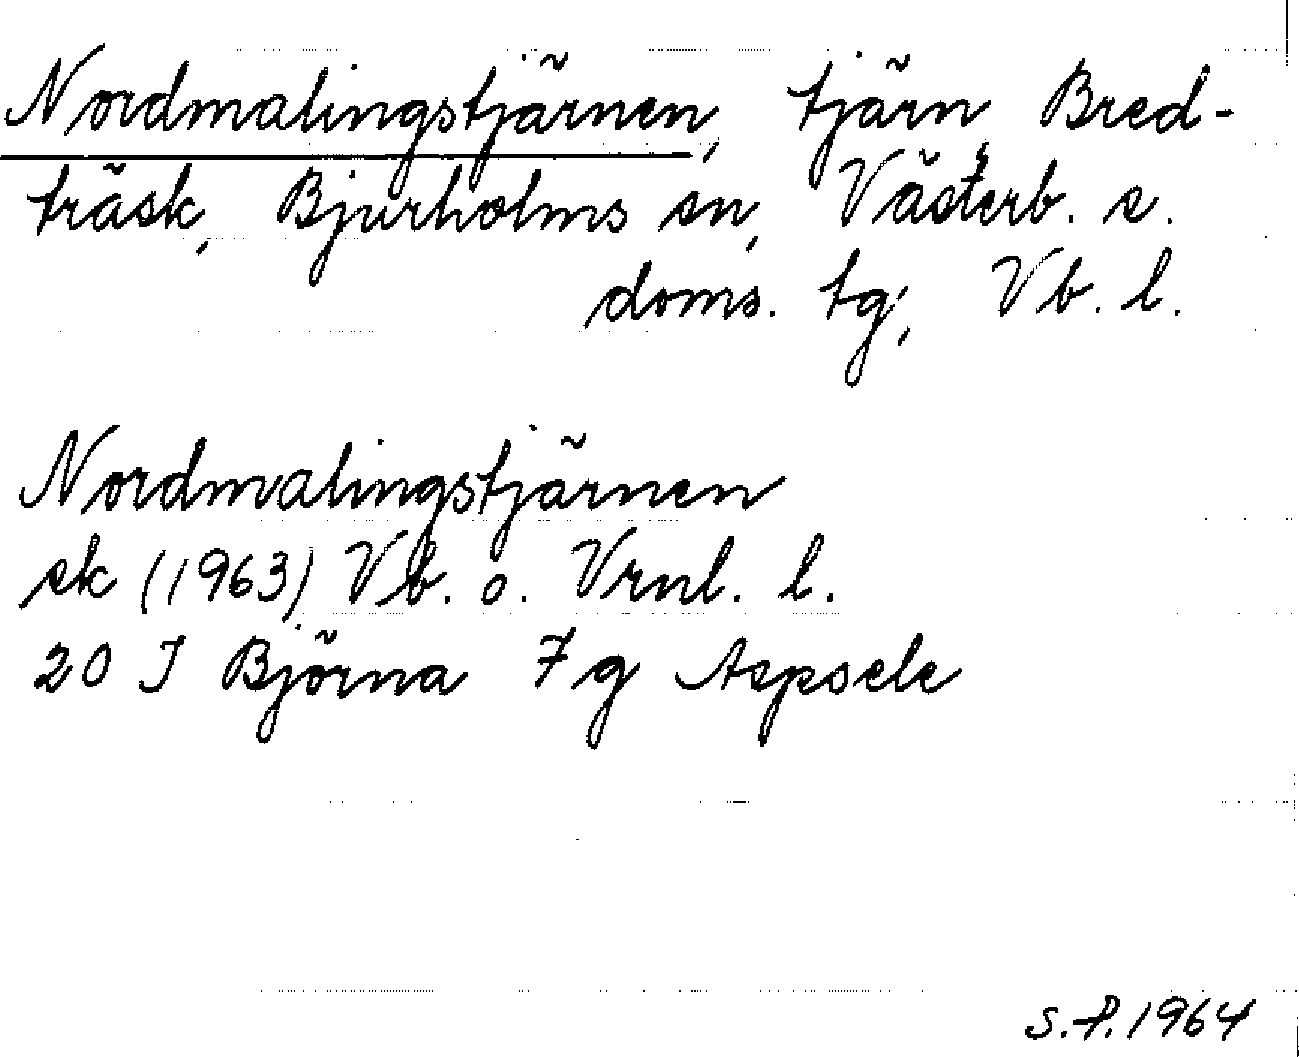 Nordmalingstjärnen, tjärn, Bred-
träsk, Bjurholms sn, Västerb. s.
doms. tg, Vb. l.
Nordmalingstjärnen
ek (1963) Vb. o. Vrnl. l.
20 J Björna 7 g Aspsele
S.P. 1964